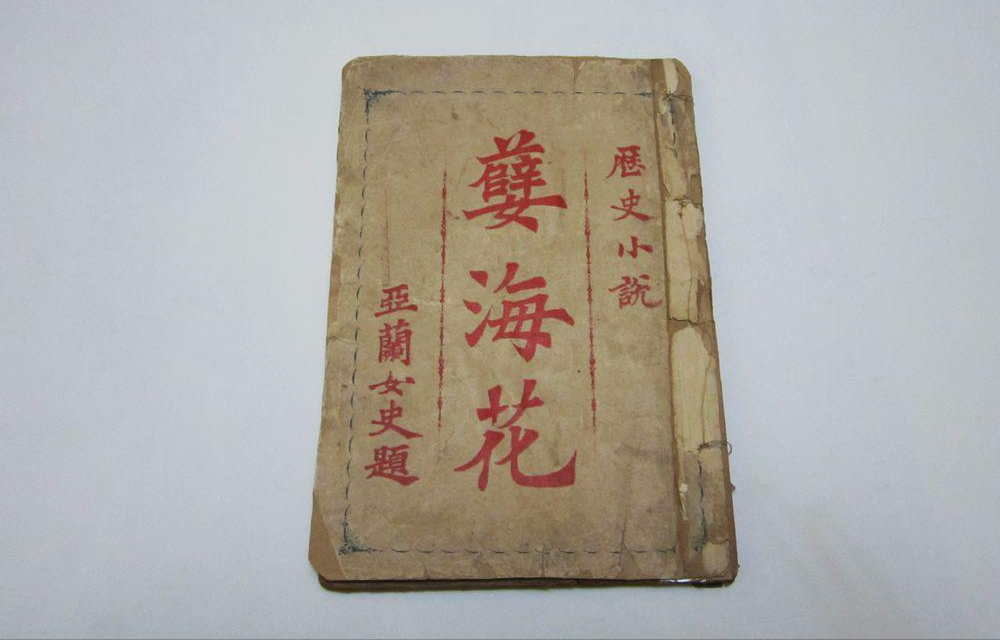 歷史小說
孽海花
亞蘭女史題